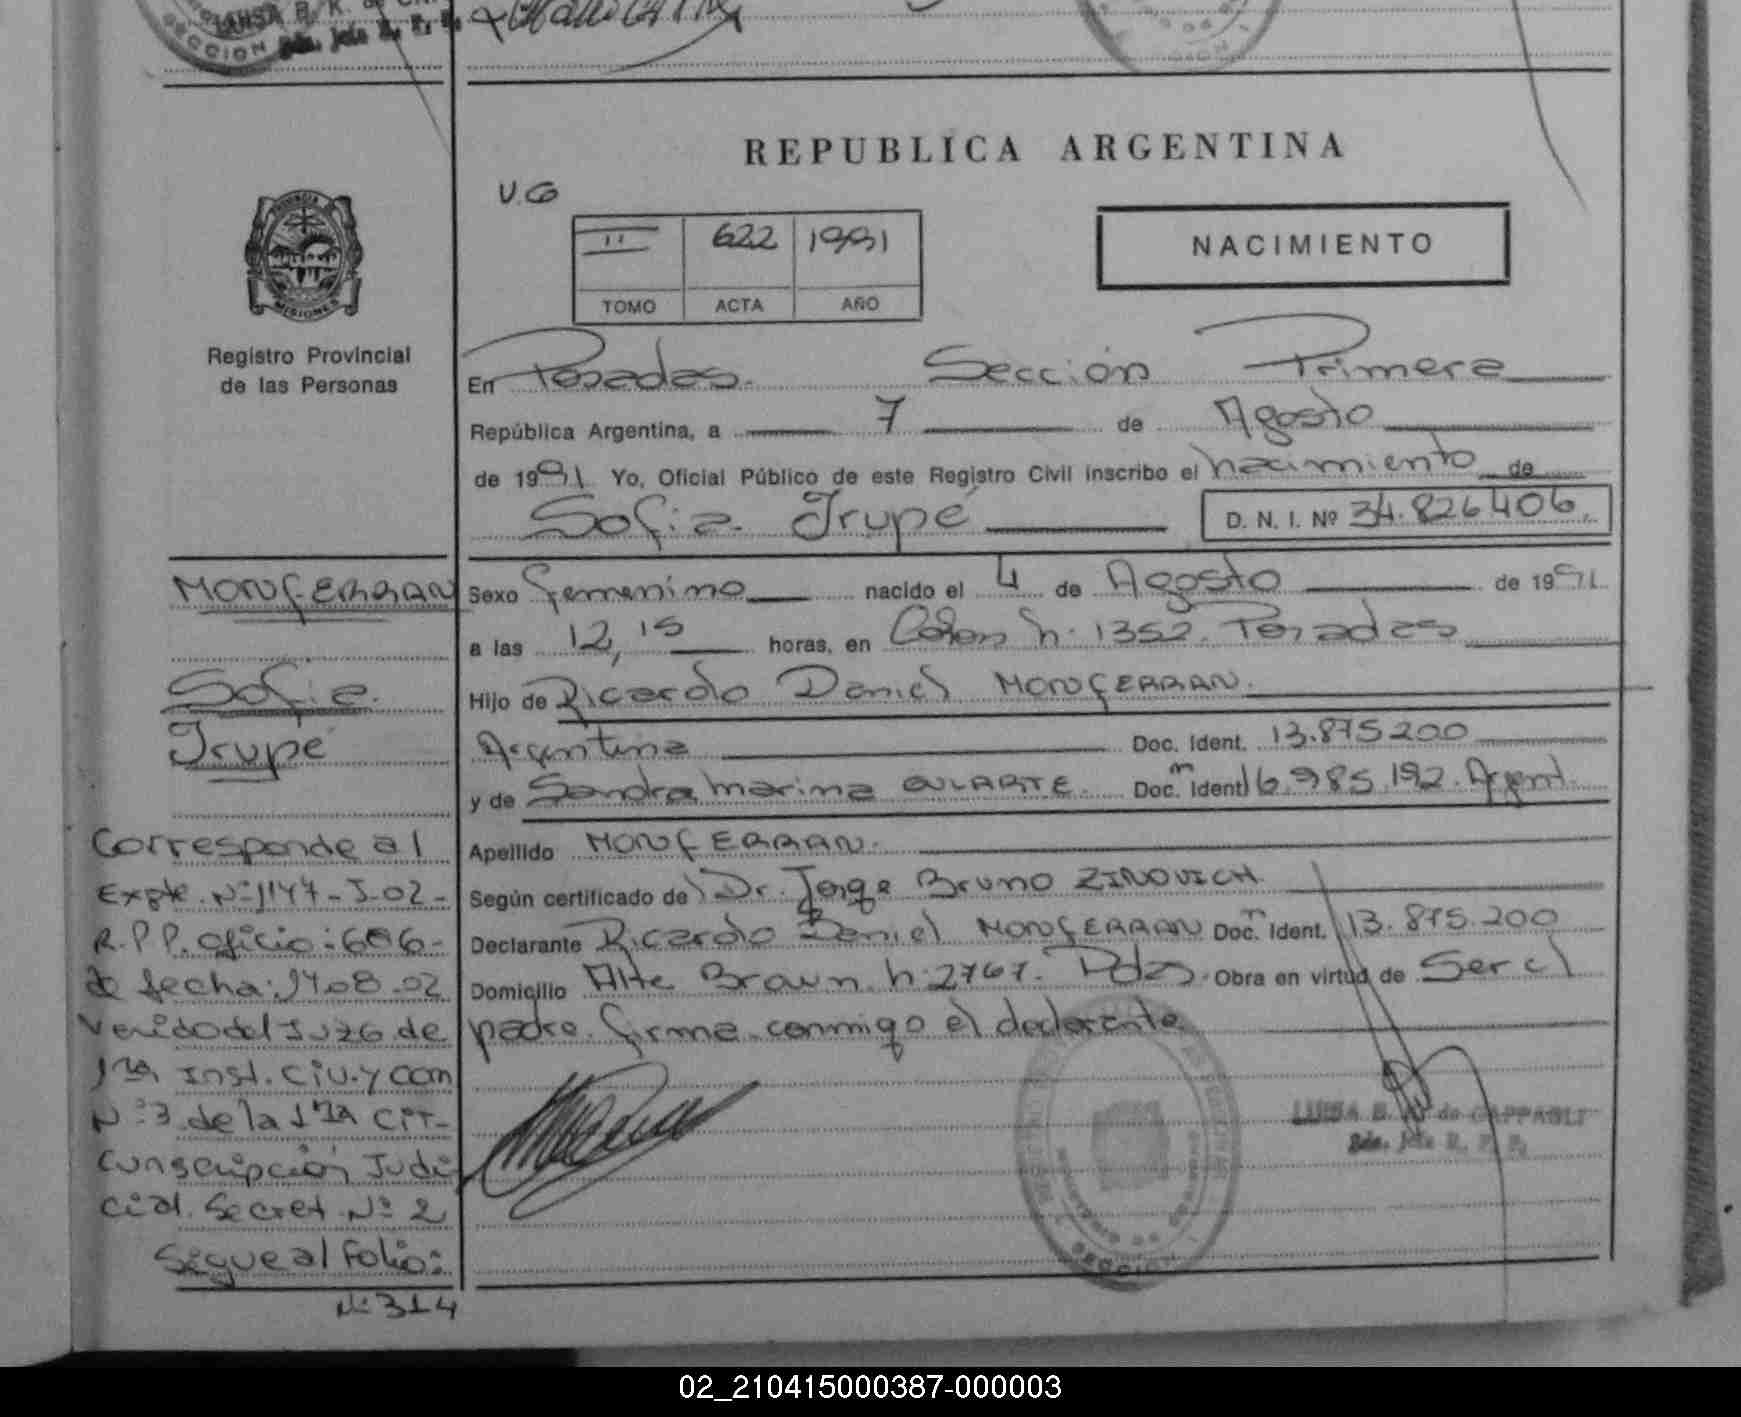 REPUBLICA ARGENTINA
PROVINCIA
MISIONES
Registro Provincial
de las Personas
V.G
II 622 1991
TOMO ACTA AÑO
NACIMIENTO
En Posadas. Sección Primera
República Argentina, a 7 de Agosto
de 1991 Yo, Oficial Público de este Registro Civil inscribo el nacimiento de
Sofia Irupé D. N. I. Nº 34.826.406
MONFERRAN
Sofia
Irupé
Sexo femenino nacido el 4 de Agosto de 1991
a las 12,15 horas, en Colon n. 1352. Posadas
Hijo de Ricardo Daniel MONFERRAN.
Argentina Doc. Ident. 13.875.200
y de Sandra Marina GULARTE. Doc. Ident 16.985.192. Argent.
Apellido MONFERRAN.
Según certificado de Dr. Jorge Bruno ZINOVICH
Declarante Ricardo Daniel MONFERRAN Doc. Ident. 13.875.200
Domicilio Alte Brown n. 2767. Pdas. Obra en virtud de Ser el
padre. firma conmigo el declarante
Corresponde al
Expte. Nº 1147-J-02-
R.P.P. oficio: 606-
de fecha: 14.08.02
Venido del Juzg. de
1ra Inst. Civ. y Com
Nº 3 de la 1ra Cir-
cunscripción Judi
cial. Secret Nº 2
Sigue al Folio:
Nº 314
LUISA B. K. de CAPPAGLI
2da. Jefe R. P. P.
SECCION
02_210415000387-000003